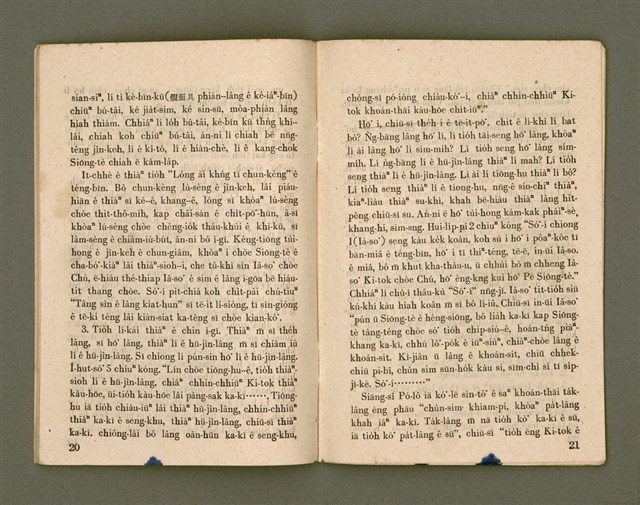 sian-siⁿ, lí tì ké-bīn-kū(假面具 phiàn-lâng ê ké-iâⁿ-bīn)
chiūⁿ bú-tâi, ké jia̍t-sim, ké sìn-sū, mōa-phiàn lâng
hia̍h thiàm. Chhiáⁿ lí lo̍h bú-tâi, ké-bīn-kū thǹg khí-
lâi, chiah koh chiūⁿ bú-tâi, án-ni lí chiah bē nn̄g-
têng jîn-keh, lí ê kî-tó, lí ê hiàn-chè, lí ê kang-chok
Siōng-tè chiah ē kám-la̍p.
It-chhè ê thiàⁿ tio̍h "Lóng ài khǹg tī chun-kèng" ê
téng-bīn. Bô chun-kèng lú-sèng ê jîn-keh, lâi piáu-
hiān ê thiàⁿ sī ké-ê, khang-ê, lóng sī khòaⁿ lú-sèng
chòe thit-thô-mi̍h, kap chāi-sán ê chi̍t-pō͘-hūn, á-sī
khòaⁿ lú-sèng chòe chêng-io̍k tháu-khùi ê khì-kū, sī
lām-sèng ê chiàm-iú-bu̍t, án-ni bô ì-gī. Kèng-tiōng tùi-
hong ê jîn-keh ê chun-giâm, khòaⁿ i chòe Siōng-tè ê
cha-bó͘-kiáⁿ lâi thiàⁿ-sioh-i, che tú-khì sìn Iâ-so͘ chòe
Chú, ē-hiáu thè-thiap Iâ-so͘ ê sim ê lâng ī-goā bē hiáu-
tit thang chòe. Só͘-í pi̍t-chiá koh chi̍t-pái chú-tiuⁿ
"Tâng sìn ê lâng kiat-hun" sī tē-it lí-siòng, tī sìn-gióng
ê tē-ki téng lâi kiàn-siat ka-têng sī chòe kian-kò͘.
3. Tio̍h lí-kái thiàⁿ ê chin ì-gī. Thiàⁿ m̄ sī the̍h
lâng, sī hō͘ lâng, thiàⁿ lí ê hū-jîn-lâng m̄ sī chiàm iú
lí ê hū-jîn-lâng. Sī chiong lí pún-sin hō͘ lí ê hū-jîn-lâng.
Í-hut-só͘ 5 chiuⁿ kóng. "Lín chòe tiōng-hu-ê, tio̍h thiàⁿ-
sioh lí ê hū-jîn-lâng, chiàⁿ chhin-chhiūⁿ Ki-tok thiàⁿ
kàu-hōe, ūi-tio̍h kàu-hōe lâi pàng-sak ka-kī……, Tiōng-
hu iā tio̍h chiàu-iūⁿ lâi thiàⁿ hū-jîn-lâng, chhin-chhiūⁿ
thiàⁿ ka-kī ê seng-khu, thiàⁿ hū-jîn-lâng, chiū-sī thiàⁿ
ka-kī. chiông-lâi bô lâng oàn-hūn ka-kī ê seng-khu,
20
chóng-sī pó-iông chiàu-kò͘-i, chiàⁿ chhin-chhiūⁿ Ki-
tok khoán-thāi kàu-hōe chi̍t-iūⁿ."
Hō͘ i, chiū-sī the̍h i ê tē-it-pō͘, chit ê lí-khì lí bat
bô? Ǹg-bāng lâng hō͘ lí, lí tio̍h tāi-seng hō͘ lâng, khòaⁿ
lí ài lâng hō͘ lí sím-mi̍h? Lí tio̍h seng hō͘ lâng sím-
mi̍h. Lí ǹg-bāng lí ê hū-jîn-lâng thiàⁿ lí mah? Lí tio̍h
seng thiàⁿ lí ê hū-jîn-lâng. Lí ài lí tiōng-hu thiàⁿ lí bô?
Lí tio̍h seng thiàⁿ lí ê tiong-hu, nn̄g-ê sio-chiⁿ thiàⁿ,
kiaⁿ-liáu thiàⁿ su-khì, khah bē-hiáu thiàⁿ lâng hi̍t-
pêng chiū-sī su. Án-ni ē hō͘ tùi-hong kám-kak pháiⁿ-sè,
khang-hi, sim-sng. Hui-li̍p-pí 2 chiuⁿ kóng "Só͘-í chiong
I(Iâ-so͘) seng kàu ke̍k koân, koh sù i hō͘ i pōaⁿ-kòe tī
bān-miâ ê téng-bīn, hō͘ i tī thiⁿ-téng, tē-ē, in-ūi Iâ-so͘.
ê miâ, bô m̄ khut kha-thâu-u, ū chhùi bô m̄ chheng Iâ-
so͘ Ki-tok chòe Chú, hō͘ êng-kng kui hō͘ Pē Siōng-tè."
Chhiáⁿ lí chù-ì tháu-kù "Só͘-í" nn̄g-jī. Iâ-so͘ tit-tio̍h siū
kú-khì kàu hiah koân m̄ sī bô lí-iû, Chiū-sī in-ūi Iâ-so͘
"pún ū Siōng-tè ê hêng-siōng, bô lia̍h ka-kī kap Siōng-
tè tâng-têng chòe só͘ tio̍h chip-siú-ê, hoán-tńg piàⁿ-
khang ka-kī, chhú lô͘-po̍k ê iūⁿ-siùⁿ, chiâⁿ-chòe lâng ê
khoán-sit. Kì-jiân ū lâng ê khoán-sit, chiū chhek-
chiū pi-bî, chūn sim sūn-ho̍k kàu sí, sīm-chì sí tī si̍p-
jī-kè. Só͘-í………"
Siāng-sī Pó-lô iā kó͘-lē sìn-tô͘ ê saⁿ khoán-thāi ta̍k-
lâng èng pháu "chūn-sim khiam-pi, khòaⁿ pa̍t-lâng
khah iâⁿ ka-kī. Ta̍k-lâng m̄ nā tio̍h kò͘ ka-kī ê sū,
iā tio̍h kò͘ pa̍t-lâng ê sū", chiū-sī "tio̍h ēng Ki-tok ê
21